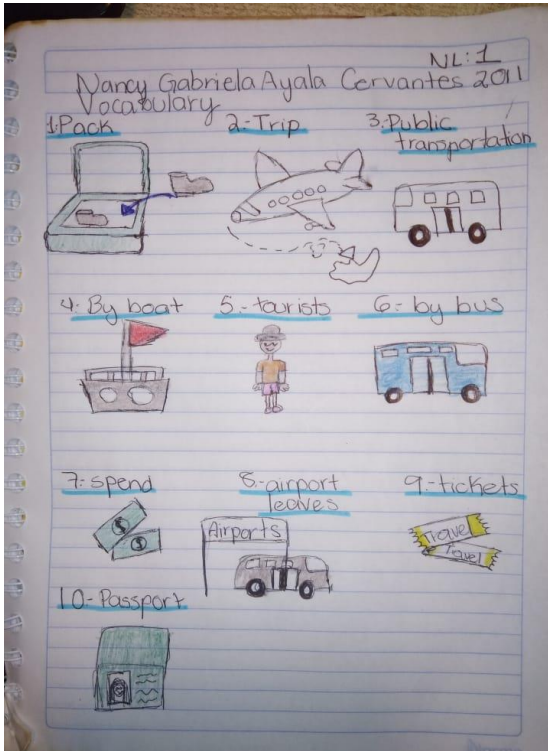 NL:1
Nancy Gabriela Ayala Cervantes 2011
Vocabulary
1.Pack
2.-Trip
3.-Public
transportation
4.- By boat
5.- tourists
6.- by bus
7.- spend
8.-airport
leaves
9.-tickets
Airports
$
$
Travel
Travel
10.-Passport